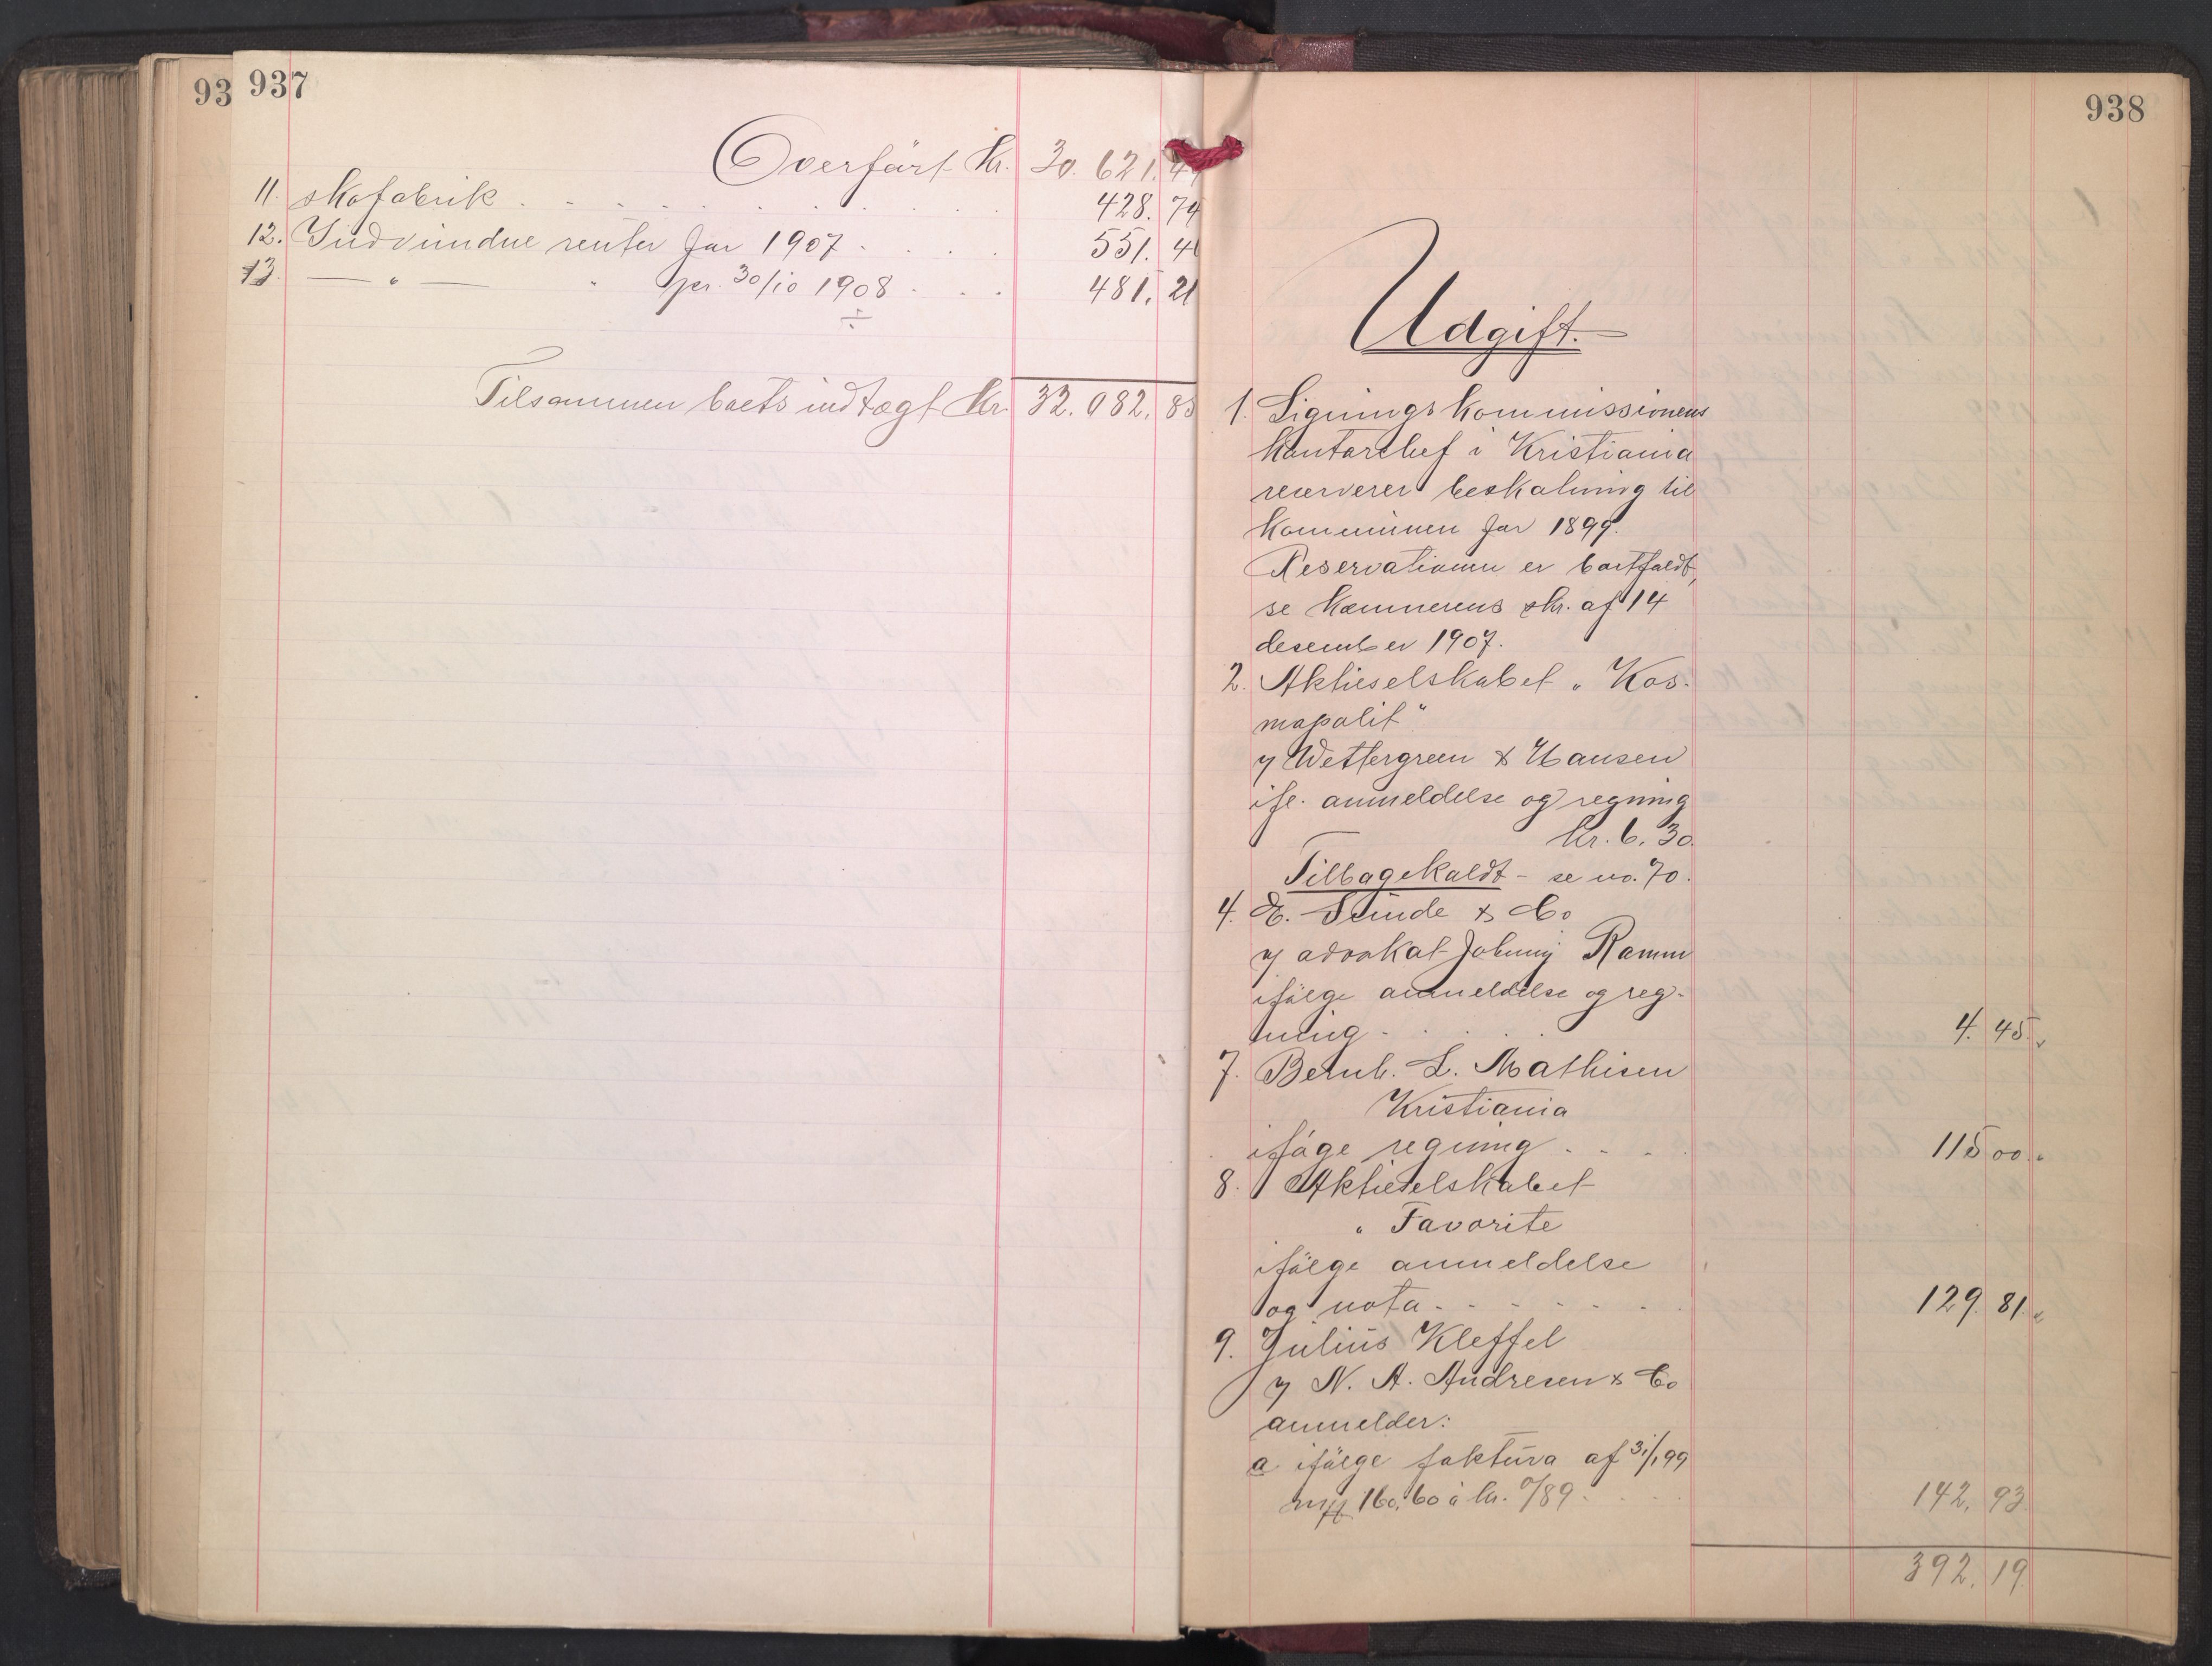 93 937
Overført Kr. 30.621.4
11. skofabrik . . . . . . . 428.74
12. Indvundne renter for 1907 . . . . 551.4
13. — " — " pr. 30/10 1908 . . . 481.21
Tilsammen boets indtægt Kr. 32.082.83
938
Udgift.
1. Ligningskommissionens
kontorchef i Kristiania
reserverer beskatning til
kommunen for 1899.
Reservationen er bortfaldt,
se kæmnerens skr. af 14
desember 1907.
2. Aktieselskabet „Kos-
mopolit"
v/ Wettergreen & Hansen
ifl. anmeldelse og regning
kr. 6.30
Tilbagekaldt - se no. 70.
4. E. Sunde & Co
v/ advokat Johnny Ramm
ifølge anmeldelse og reg-
ning . . . . 4.45
7. Bernh. L. Mathisen
Kristiania
iføge regning . . . . 115 00
8. Aktieselskabet
„Favorite
ifølge anmeldelse
og nota . . . . . . 129.81
9. Julius Kleffel
v/ N. A. Andresen & Co
anmelder:
a ifølge faktura af 31/1 99
160.60 à kr. 0/89 . . . . 142.93
392.19